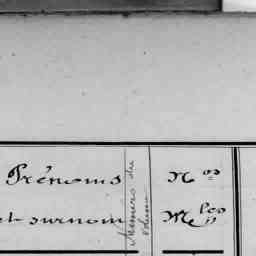 Prénoms
et surnom
Numéro du
volume
Nos
Mles